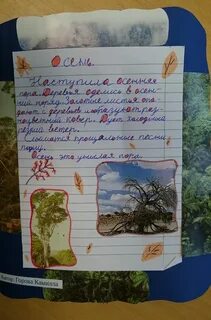 Осень.
Наступила осенняя
пора. Деревья оделись в осен-
ний наряд. Золотые листья опа-
дают с деревьев и образуют раз-
ноцветный ковёр. Дует холодный
резкий ветер.
Слышатся прощальные песни
птиц.
Осень это унылая пора.
Автор: Горова Камилла